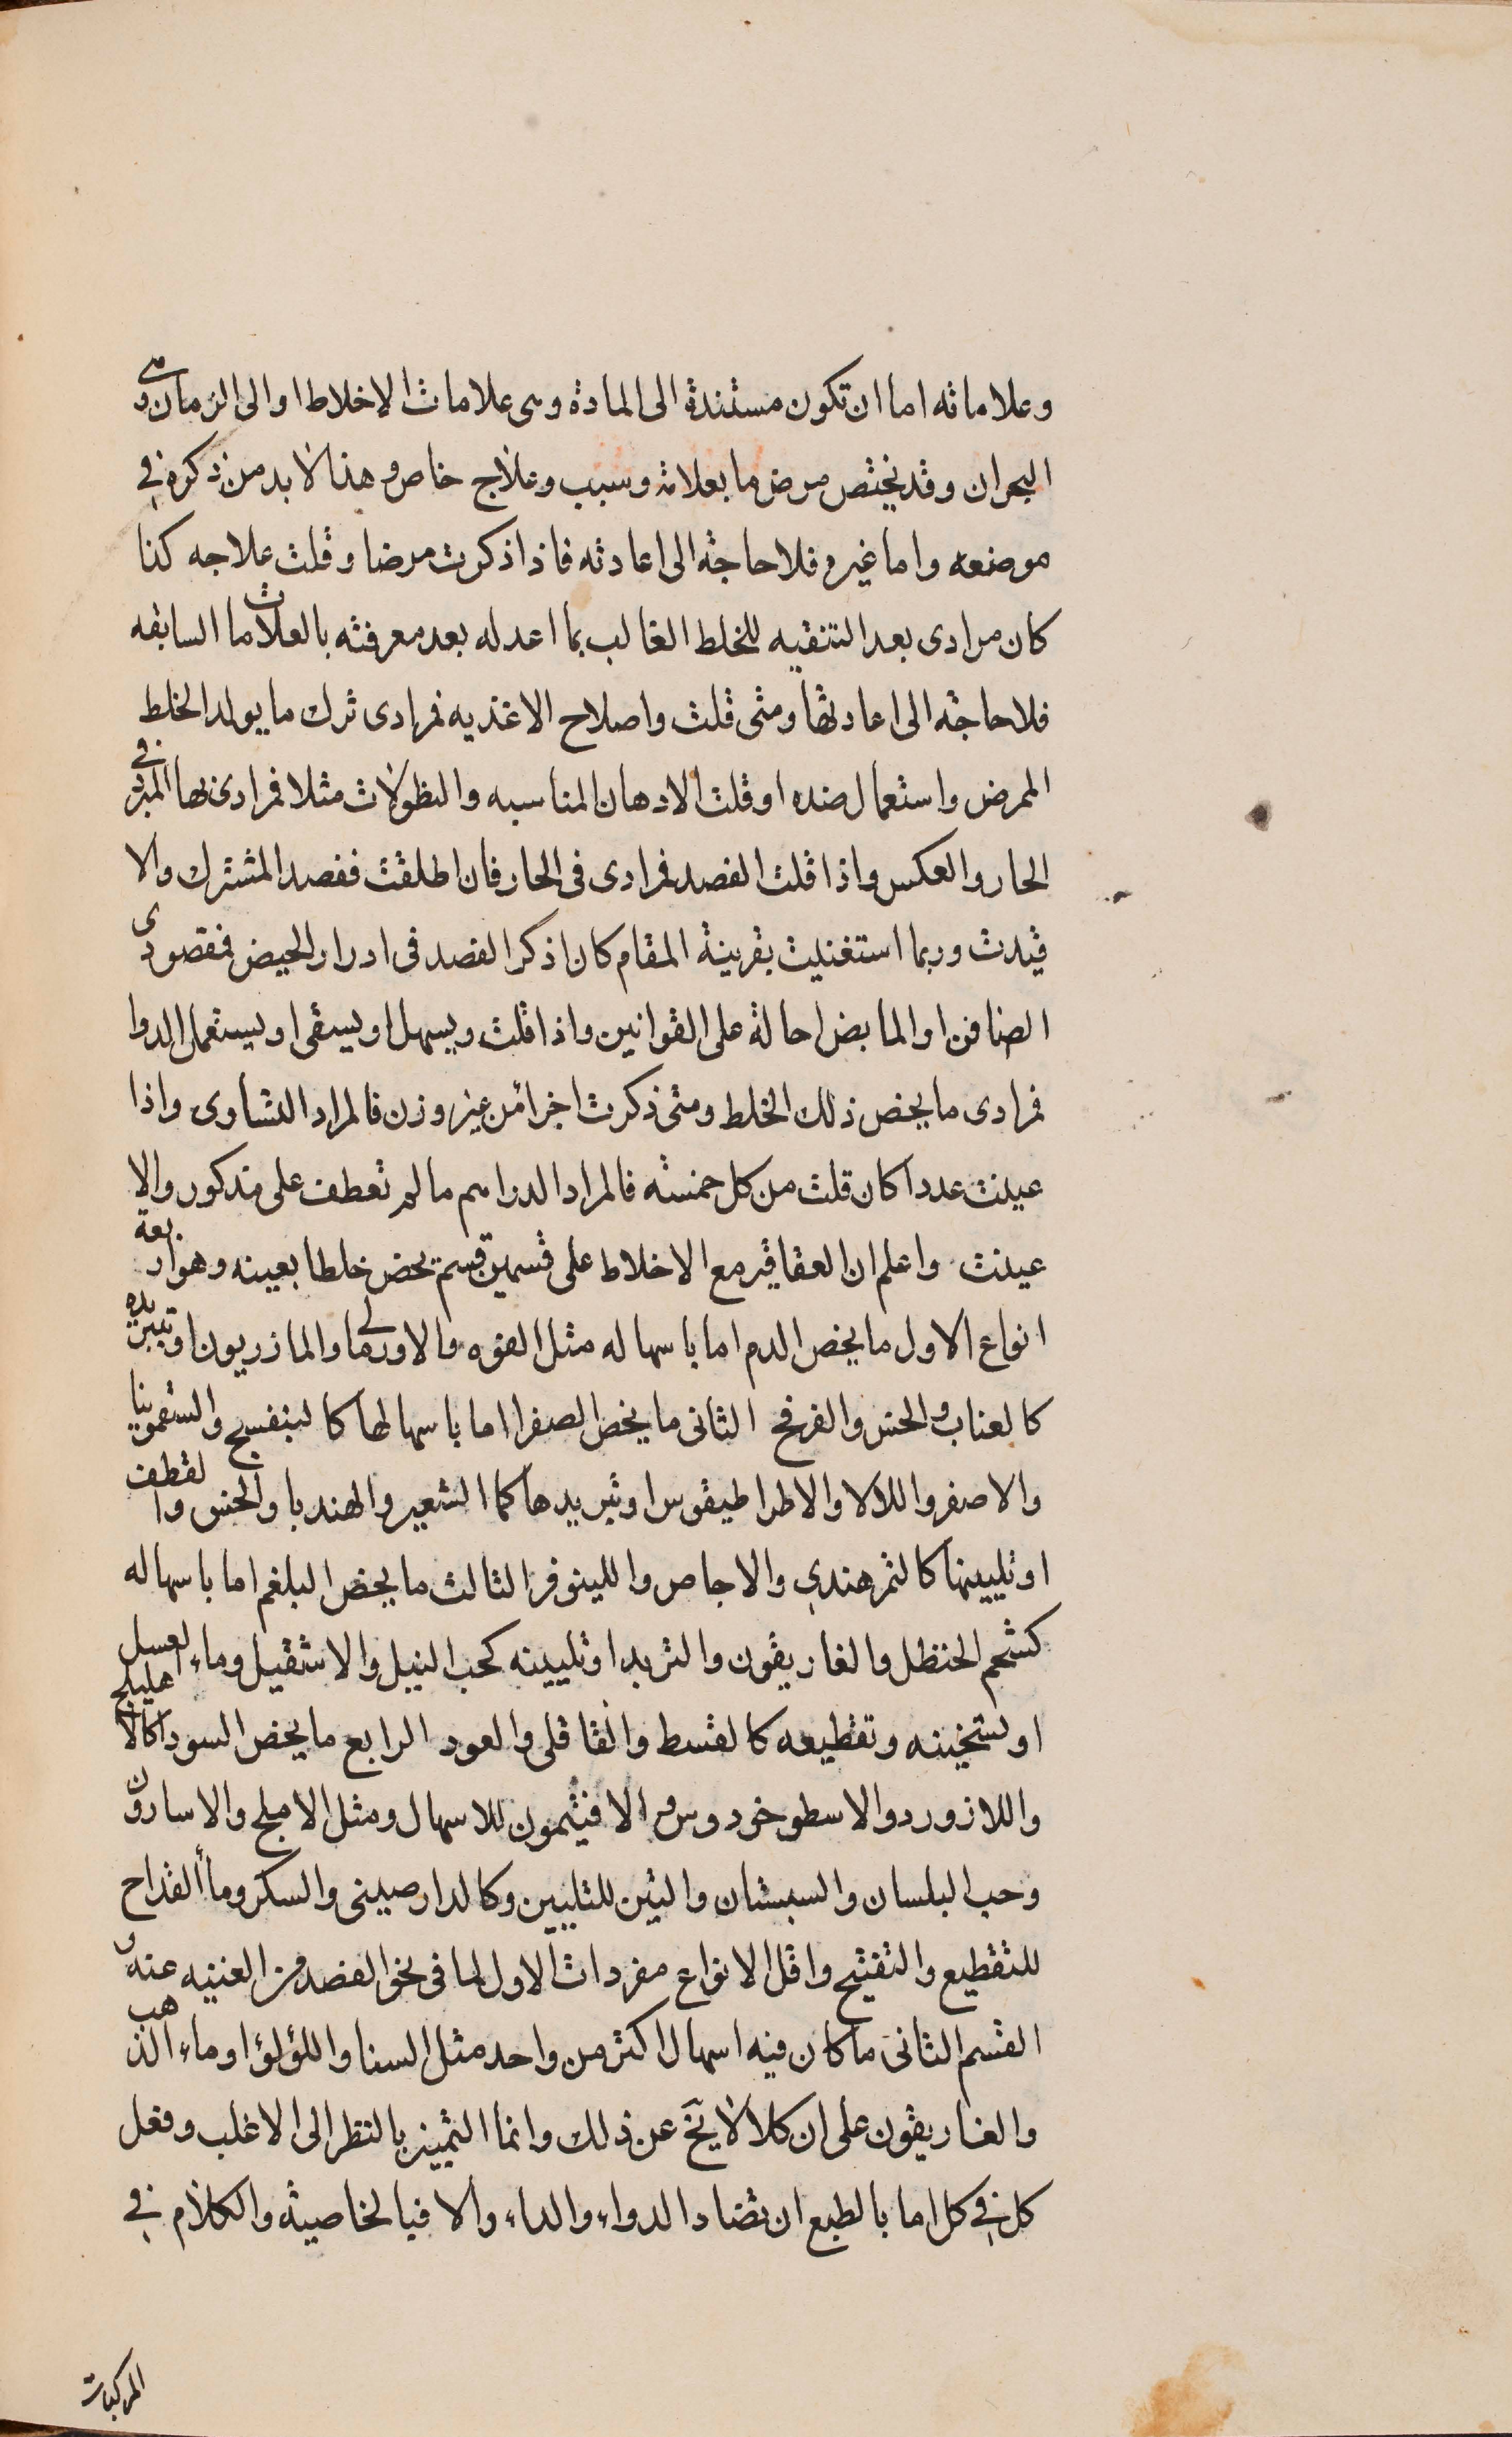 وعلاماته اما ان تكون مستندة الى المادة وهى علامات الاخلاط او الى الزمان وهى
البحران وقد يختص مرض ما بعلامة وسبب وعلاج خاص وهذا لابد من ذكره في
موضعه واما غيره فلا حاجة الى اعادته فاذا ذكرت مرضا وقلت علاجه كذا
كان مرادى بعد التنقيه للخلط الغالب بما اعد له بعد معرفته بالعلامات السابقه
فلا حاجة الى اعادتها ومتى قلت واصلاح الاغذيه فمرادى ترك ما يولد الخلط
الممرض واستعمال ضده او قلت الادهان المناسبه والنطولات مثلا فمرادى بها المبرد في
الحار والعكس واذا قلت الفصد فمرادى فى الحار فان اطلقت ففصد المشترك والا
قيدت وربما استغنيت بقرينة المقام كان اذكر الفصد فى ادرار الحيض فمقصودى
الصافن او المابض احالة على القوانين واذا قلت ويسهل او يسقى او يستعمل الدوا
فمرادى ما يخص ذلك الخلط ومتى ذكرت اجزا من غير وزن فالمراد التساوى واذا
عينت عددا كان قلت من كل خمسة فالمراد الدراهم ما لم تعطف على مذكور والا
عينت واعلم ان العقاقير مع الاخلاط على قسمين قسم يخص خلطا بعينه وهو اربعة
انواع الاول ما يخص الدم اما باسهاله مثل الفوه والاورمالى والمازريون او تبريده
كالعناب والخس والفرفخ الثانى ما يخص الصفرا اما باسهالها كالبنفسج والسقمونيا
والاصفر واللالا والاطراطيقوس او تبريدها كما الشعير والهندبا والخس والقطف
او تليينها كالتمرهندي والاجاص واللينوفر الثالث ما يخص البلغم اما باسهاله
كشحم الحنظل والغاريقون والتربد او تليينه كحب النيل والاشقيل وماء العسل
او تسخينه وتقطيعه كالقسط والقاقلى والعود الرابع ما يخص السودا كالاهليلج
واللازورد والاسطوخودوس والافيتمون للاسهال ومثل الاملج والاسارون
وحب البلسان والسبستان والتين للتليين وكالدارصينى والسكر وماء القداح
للتقطيع والتفتيح واقل الانواع مفردات الاول لما فى نحو الفصد من الغنيه عنه و
القسم الثانى ما كان فيه اسهال اكثر من واحد مثل السنا واللؤلؤ او ماء الذهب
والغاريقون على ان كلا لا يخ عن ذلك وانما التمييز بالنظر الى الاغلب وفعل
كل في كل اما بالطبع ان تضاد الدواء والداء والا فبالخاصية والكلام في
المركبات